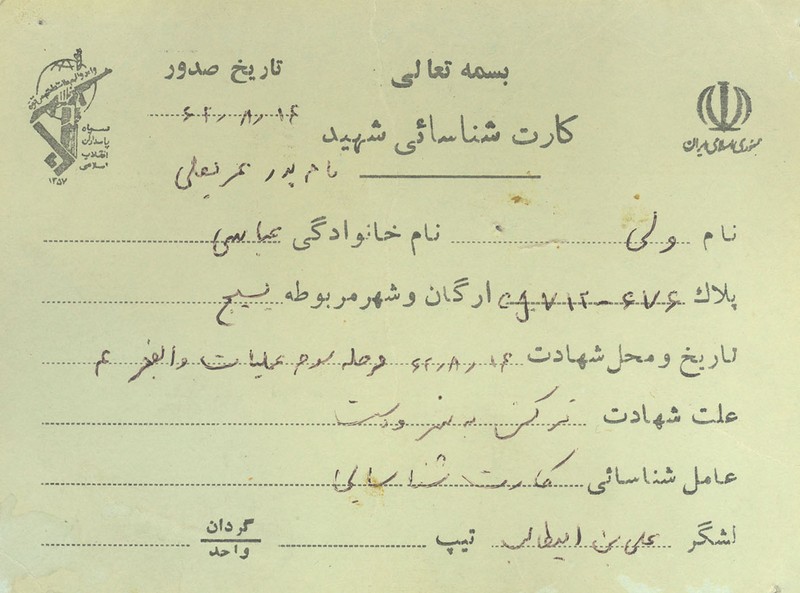 بسمه تعالی
جمهوری اسلامی ایران
سپاه پاسداران انقلاب اسلامی
۱۳۵۷
تاریخ صدور
۶۲/۸/۱۴
کارت شناسائی شهید
نام پدر
نام ولی نام خانوادگی عباسی
پلاك ۶۷۶-۷۱۲ ارگان و شهر مربوطه بسیج
تاریخ و محل شهادت ۶۲/۸/۱۴ مرحله سوم عملیات والفجر ۴
علت شهادت ترکش به سر و دست
عامل شناسائی کارت شناسایی
لشگر علی بن ابیطالب تیپ گردان
واحد